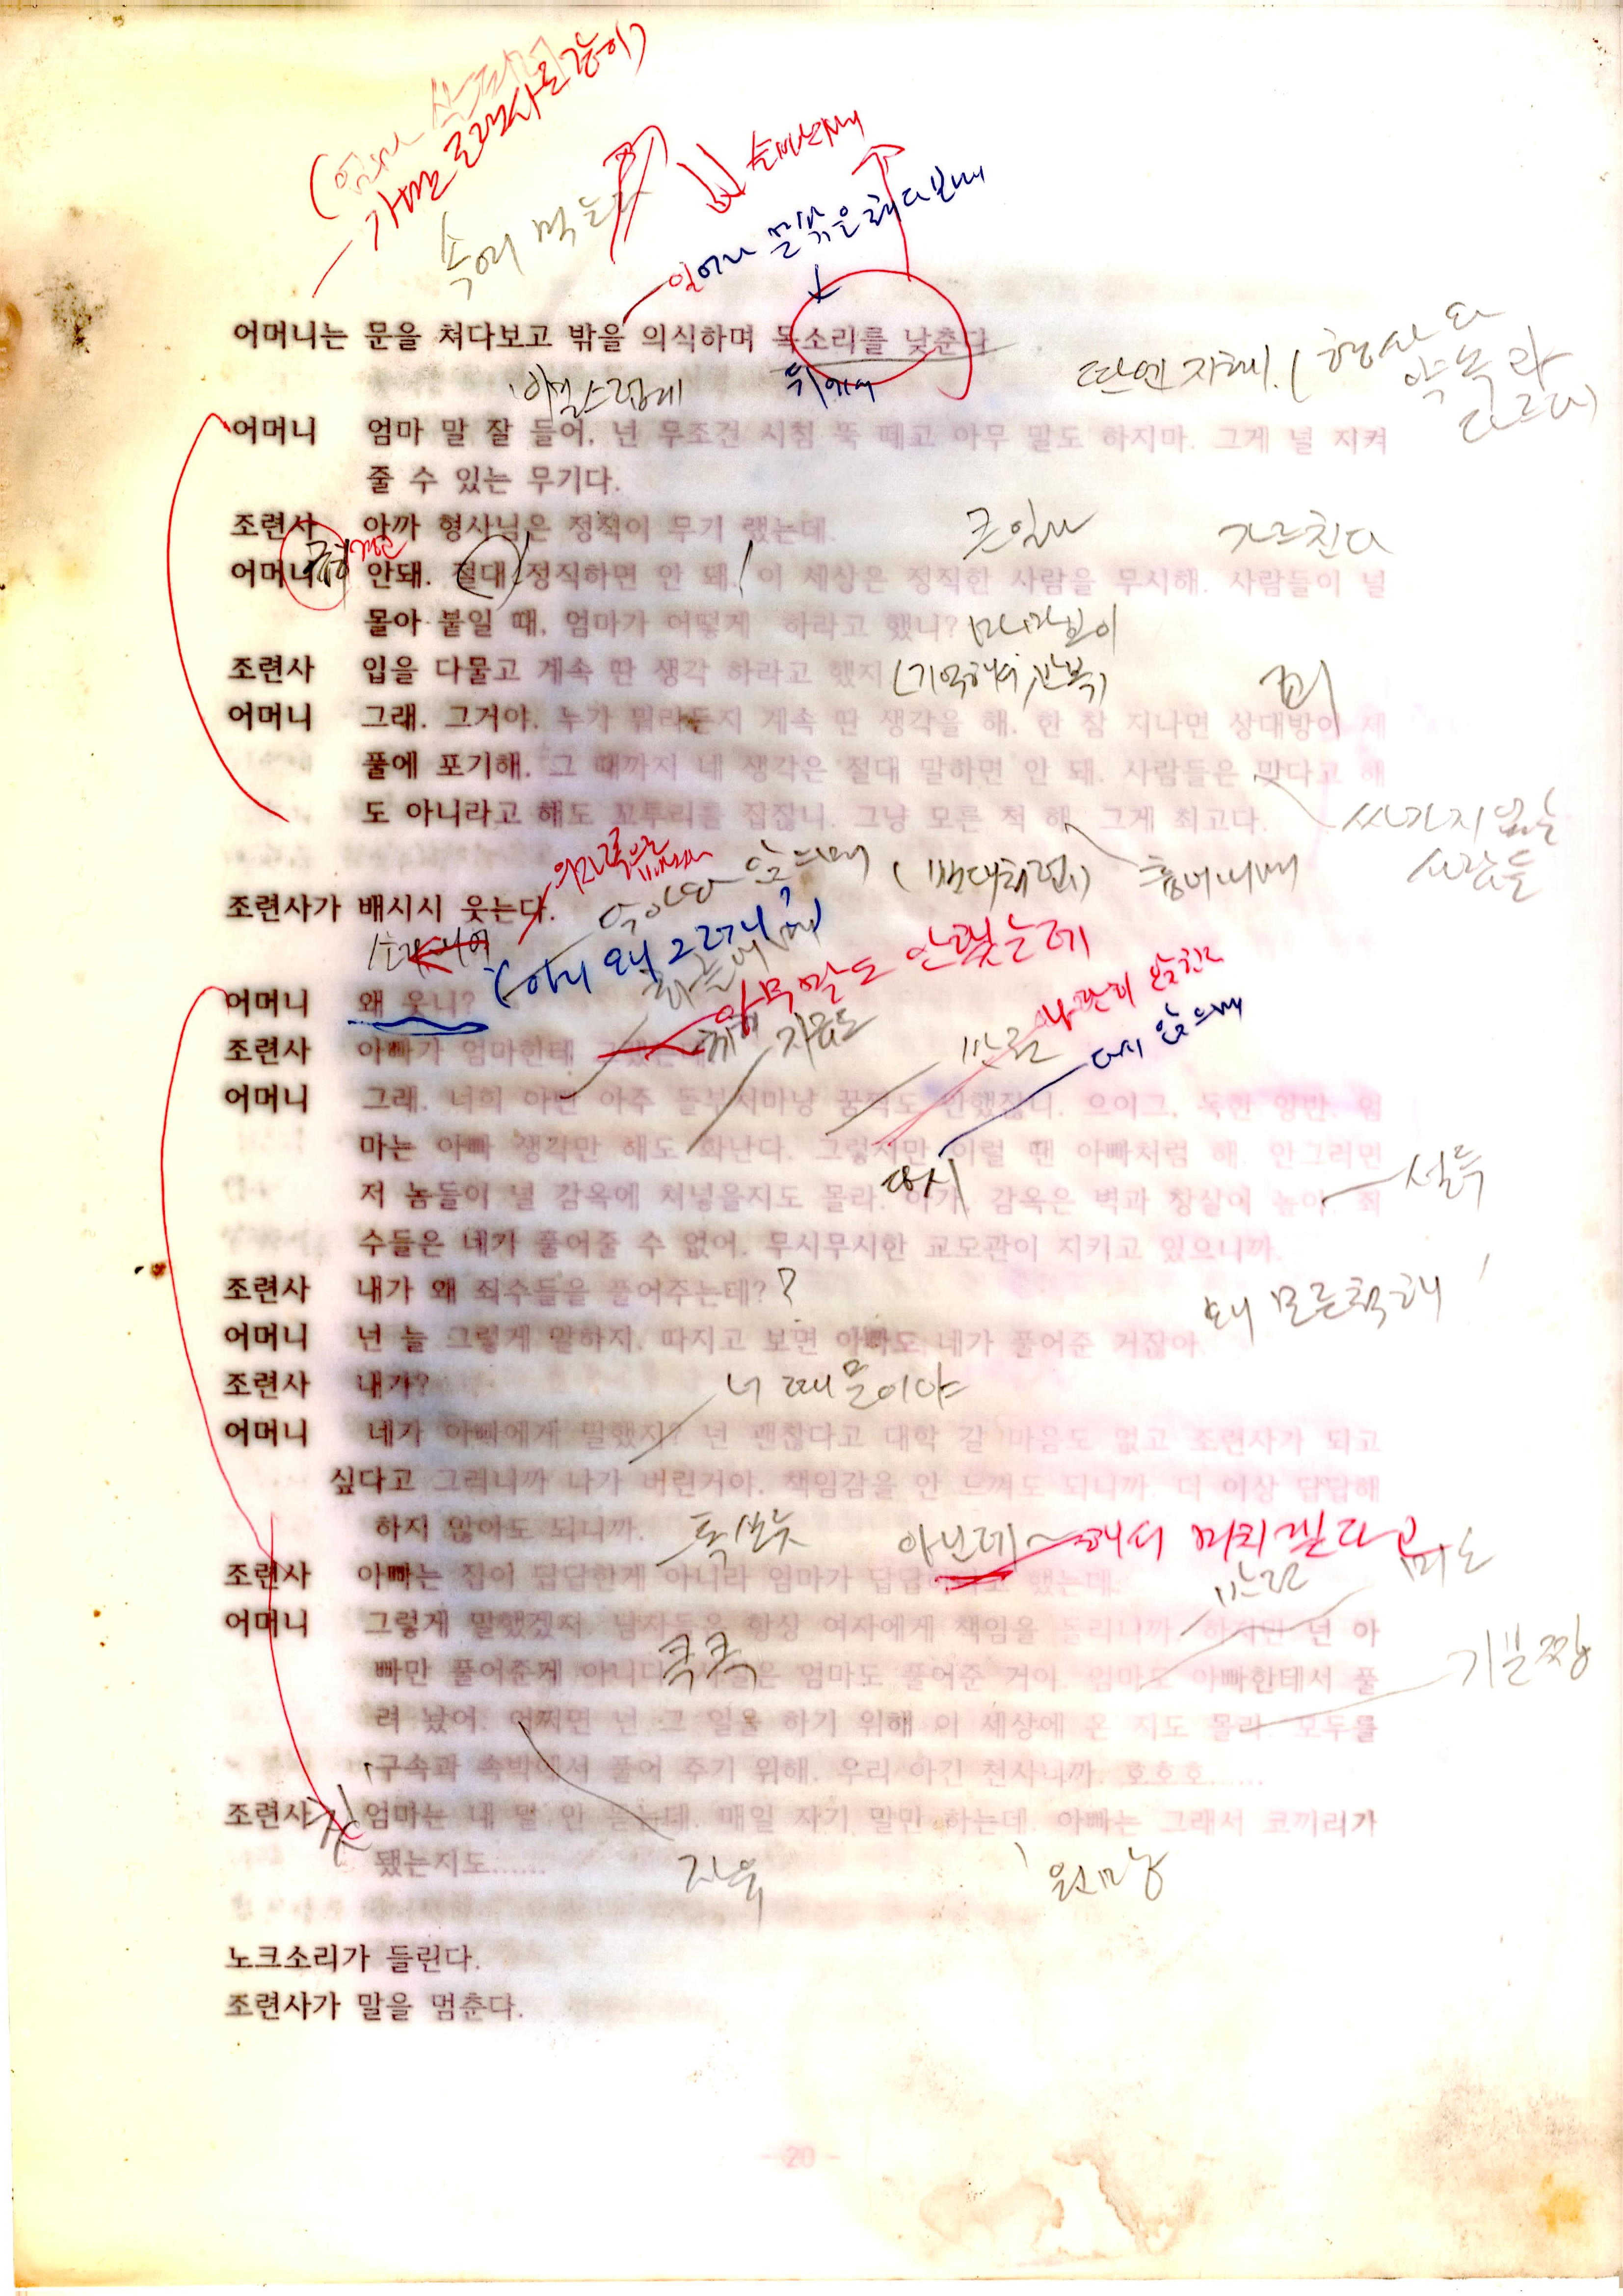 가방을 조련사로 같이)
속여 먹는
손바닥에
일어나 문밖을 쳐다보며
어머니는 문을 쳐다보고 밖을 의식하며 목소리를 낮춘다.
위에서
어머니 엄마 말 잘 들어, 넌 무조건 시침 뚝 떼고 아무 말도 하지마. 그게 널 지켜
줄 수 있는 무기다.
조련사 아까 형사님은 정직이 무기 랬는데.
큰일나
가르친다
어머니 안돼. 절대 정직하면 안 돼. 이 세상은 정직한 사람을 무시해. 사람들이 널
몰아 붙일 때, 엄마가 어떻게 하라고 했니?
조련사 입을 다물고 계속 딴 생각 하라고 했지
(기억해서, 반복)
어머니 그래. 그거야. 누가 뭐라든지 계속 딴 생각을 해. 한 참 지나면 상대방이 제
풀에 포기해. 그 때까지 네 생각은 절대 말하면 안 돼. 사람들은 맞다고 해
도 아니라고 해도 꼬투리를 잡잖니. 그냥 모른 척 해. 그게 최고다.
싸가지 없는
사람들
앉으며
흉내내며
조련사가 배시시 웃는다.
(아니 왜 그러니?)
아무말도 안했는데
어머니 왜 웃니?
조련사 아빠가 엄마한테 그랬는데
지금도
바로
다시 앉으며
어머니 그래. 너희 아빤 아주 돌부처마냥 꿈쩍도 안했잖니. 으이그, 독한 양반. 엄
마는 아빠 생각만 해도 화난다. 그렇지만 이럴 땐 아빠처럼 해. 안그러면
설득
저 놈들이 널 감옥에 처넣을지도 몰라. 아가, 감옥은 벽과 창살이 높아. 죄
다시
수들은 네가 풀어줄 수 없어. 무시무시한 교도관이 지키고 있으니까.
조련사 내가 왜 죄수들을 풀어주는데??
왜 모른척해
어머니 넌 늘 그렇게 말하지. 따지고 보면 아빠도 네가 풀어준 거잖아.
조련사 내가?
너 때문이야
어머니 네가 아빠에게 말했지? 넌 괜찮다고 대학 갈 마음도 없고 조련사가 되고
싶다고 그러니까 나가 버린거야. 책임감을 안 느껴도 되니까. 더 이상 답답해
하지 않아도 되니까.
아닌데~ 해서 미치겠다고
조련사 아빠는 집이 답답한게 아니라 엄마가 답답하다고 했는데.
바로
어머니 그렇게 말했겠지. 남자들은 항상 여자에게 책임을 돌리니까. 하지만 넌 아
쿡쿡
빠만 풀어준게 아니다. 사실은 엄마도 풀어준 거야. 엄마도 아빠한테서 풀
기분 짱
려 났어. 어쩌면 넌 그 일을 하기 위해 이 세상에 온 지도 몰라. 모두를
구속과 속박에서 풀어 주기 위해. 우리 아긴 천사니까. 호호호......
조련사 엄마는 내 말 안 듣는데. 매일 자기 말만 하는데. 아빠는 그래서 코끼리가
됐는지도......
자유
원망
노크소리가 들린다.
조련사가 말을 멈춘다.
- 20 -